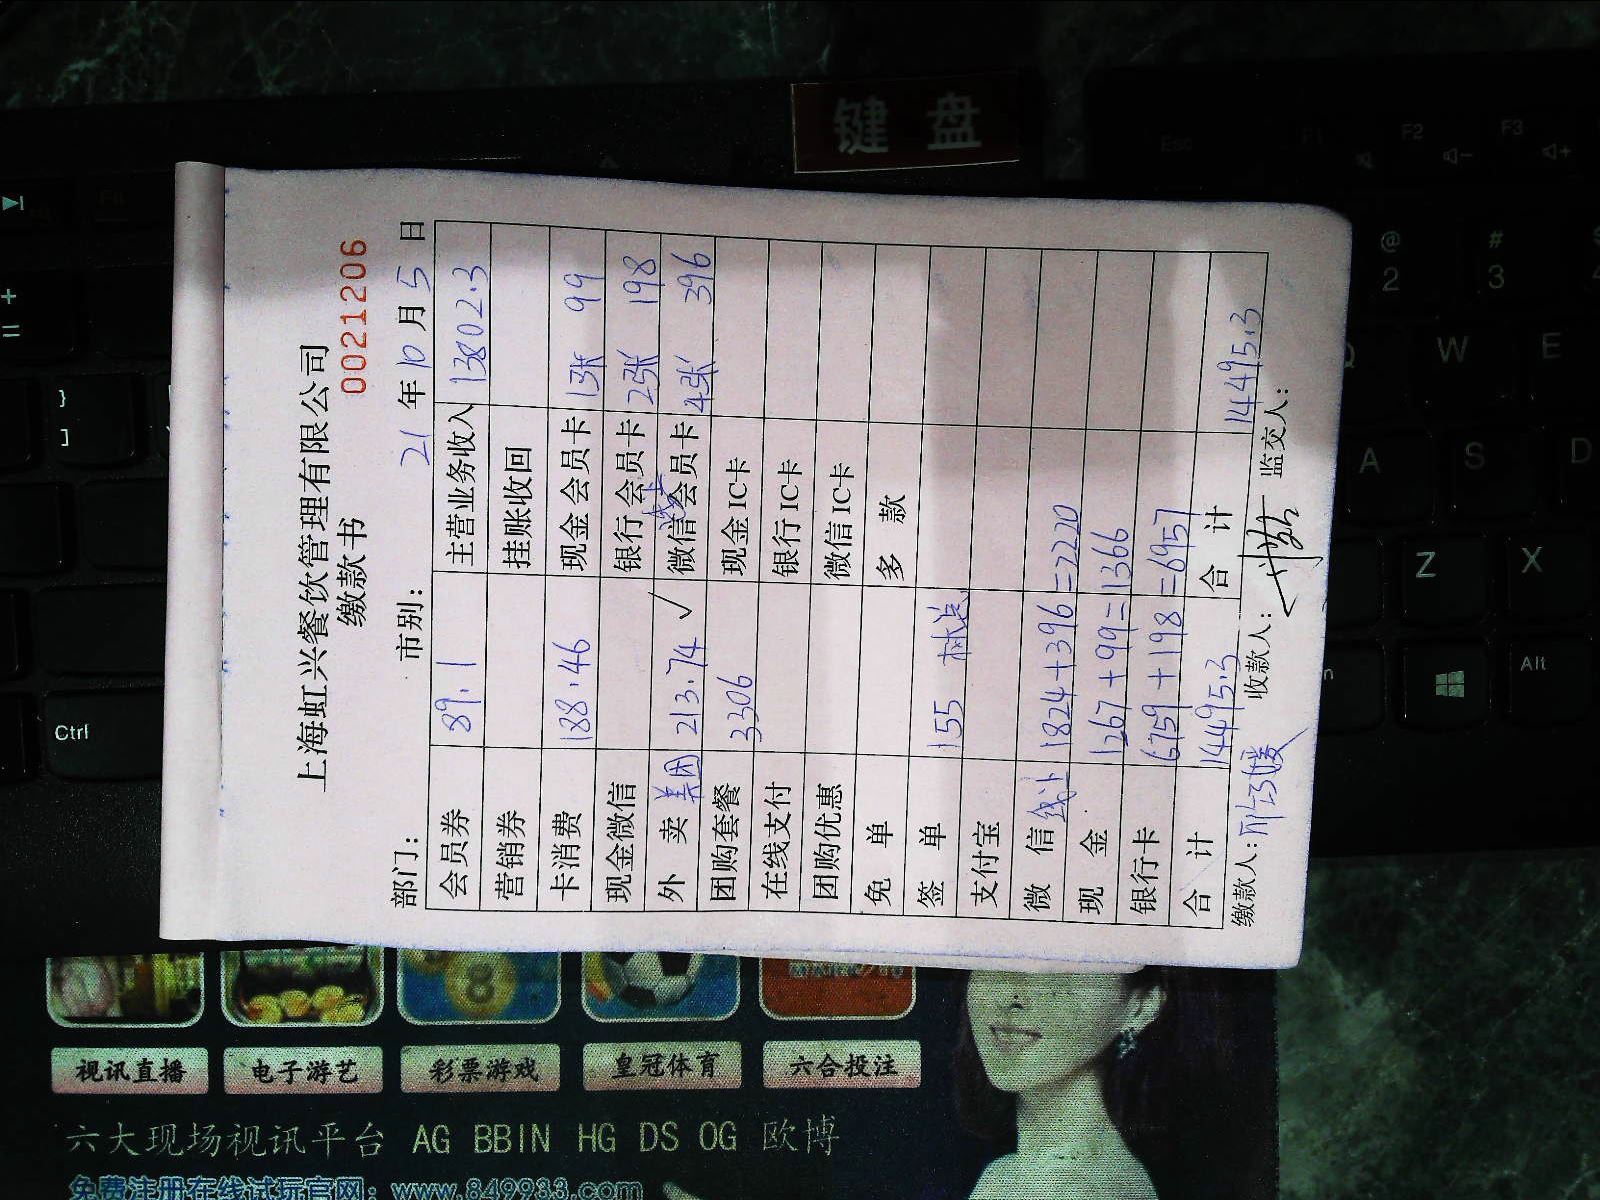 键 盘
上海虹兴餐饮管理有限公司
缴款书
0021206
部门： 市别： 21年10月5日
会员券 89.1 主营业务收入 13802.3
营销券 挂账收回
卡消费 188.46 现金会员卡 1张 99
现金微信 银行会员卡 2张 198
外 卖 美团 213.74 ✓ 微信会员卡 4张 396
团购套餐 3306 现金IC卡
在线支付 银行IC卡
团购优惠 微信IC卡
免 单 多 款
签 单 155
支付宝
微 信 1824+396=2220
现 金 1267+99=1366
银行卡 6759+198=6957
合 计 14495.3 合 计 14495.3
缴款人： 收款人： 监交人：
视讯直播 电子游艺 彩票游戏 皇冠体育 六合投注
六大现场视讯平台 AG BBIN HG DS OG 欧博
免费注册在线试玩官网：www.849933.com
Esc F1 F2 F3
Fn
+
=
}
]
Ctrl
@
2
#
3
Q W E
A S D
Z X
Alt